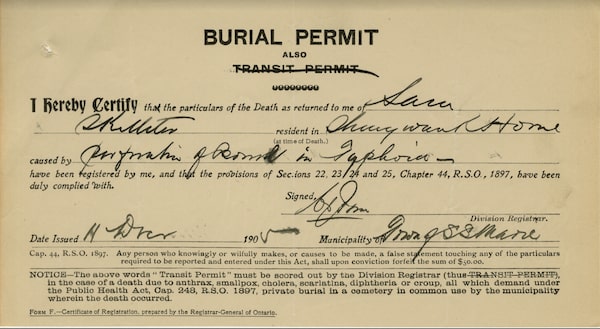 BURIAL PERMIT
ALSO
TRANSIT PERMIT
I Hereby Certify that the particulars of the Death as returned to me of Sara
Skilliter resident in Shingwauk Home
(at time of Death.)
caused by perforation of Bowel in Typhoid
have been registered by me, and that the provisions of Sections 22, 23, 24 and 25, Chapter 44, R.S.O., 1897, have been
duly complied with.
Signed,
Division Registrar.
Date Issued 11 1905 Municipality of Town of S S Marie
Cap. 44, R.S.O. 1897. Any person who knowingly or wilfully makes, or causes to be made, a false statement touching any of the particulars
required to be reported and entered under this Act, shall upon conviction forfeit the sum of $50.00.
NOTICE—The above words "Transit Permit" must be scored out by the Division Registrar (thus TRANSIT PERMIT),
in the case of a death due to anthrax, smallpox, cholera, scarlatina, diphtheria or croup, all which demand under
the Public Health Act, Cap. 248, R.S.O. 1897, private burial in a cemetery in common use by the municipality
wherein the death occurred.
FORM F.—Certificate of Registration, prepared by the Registrar-General of Ontario.